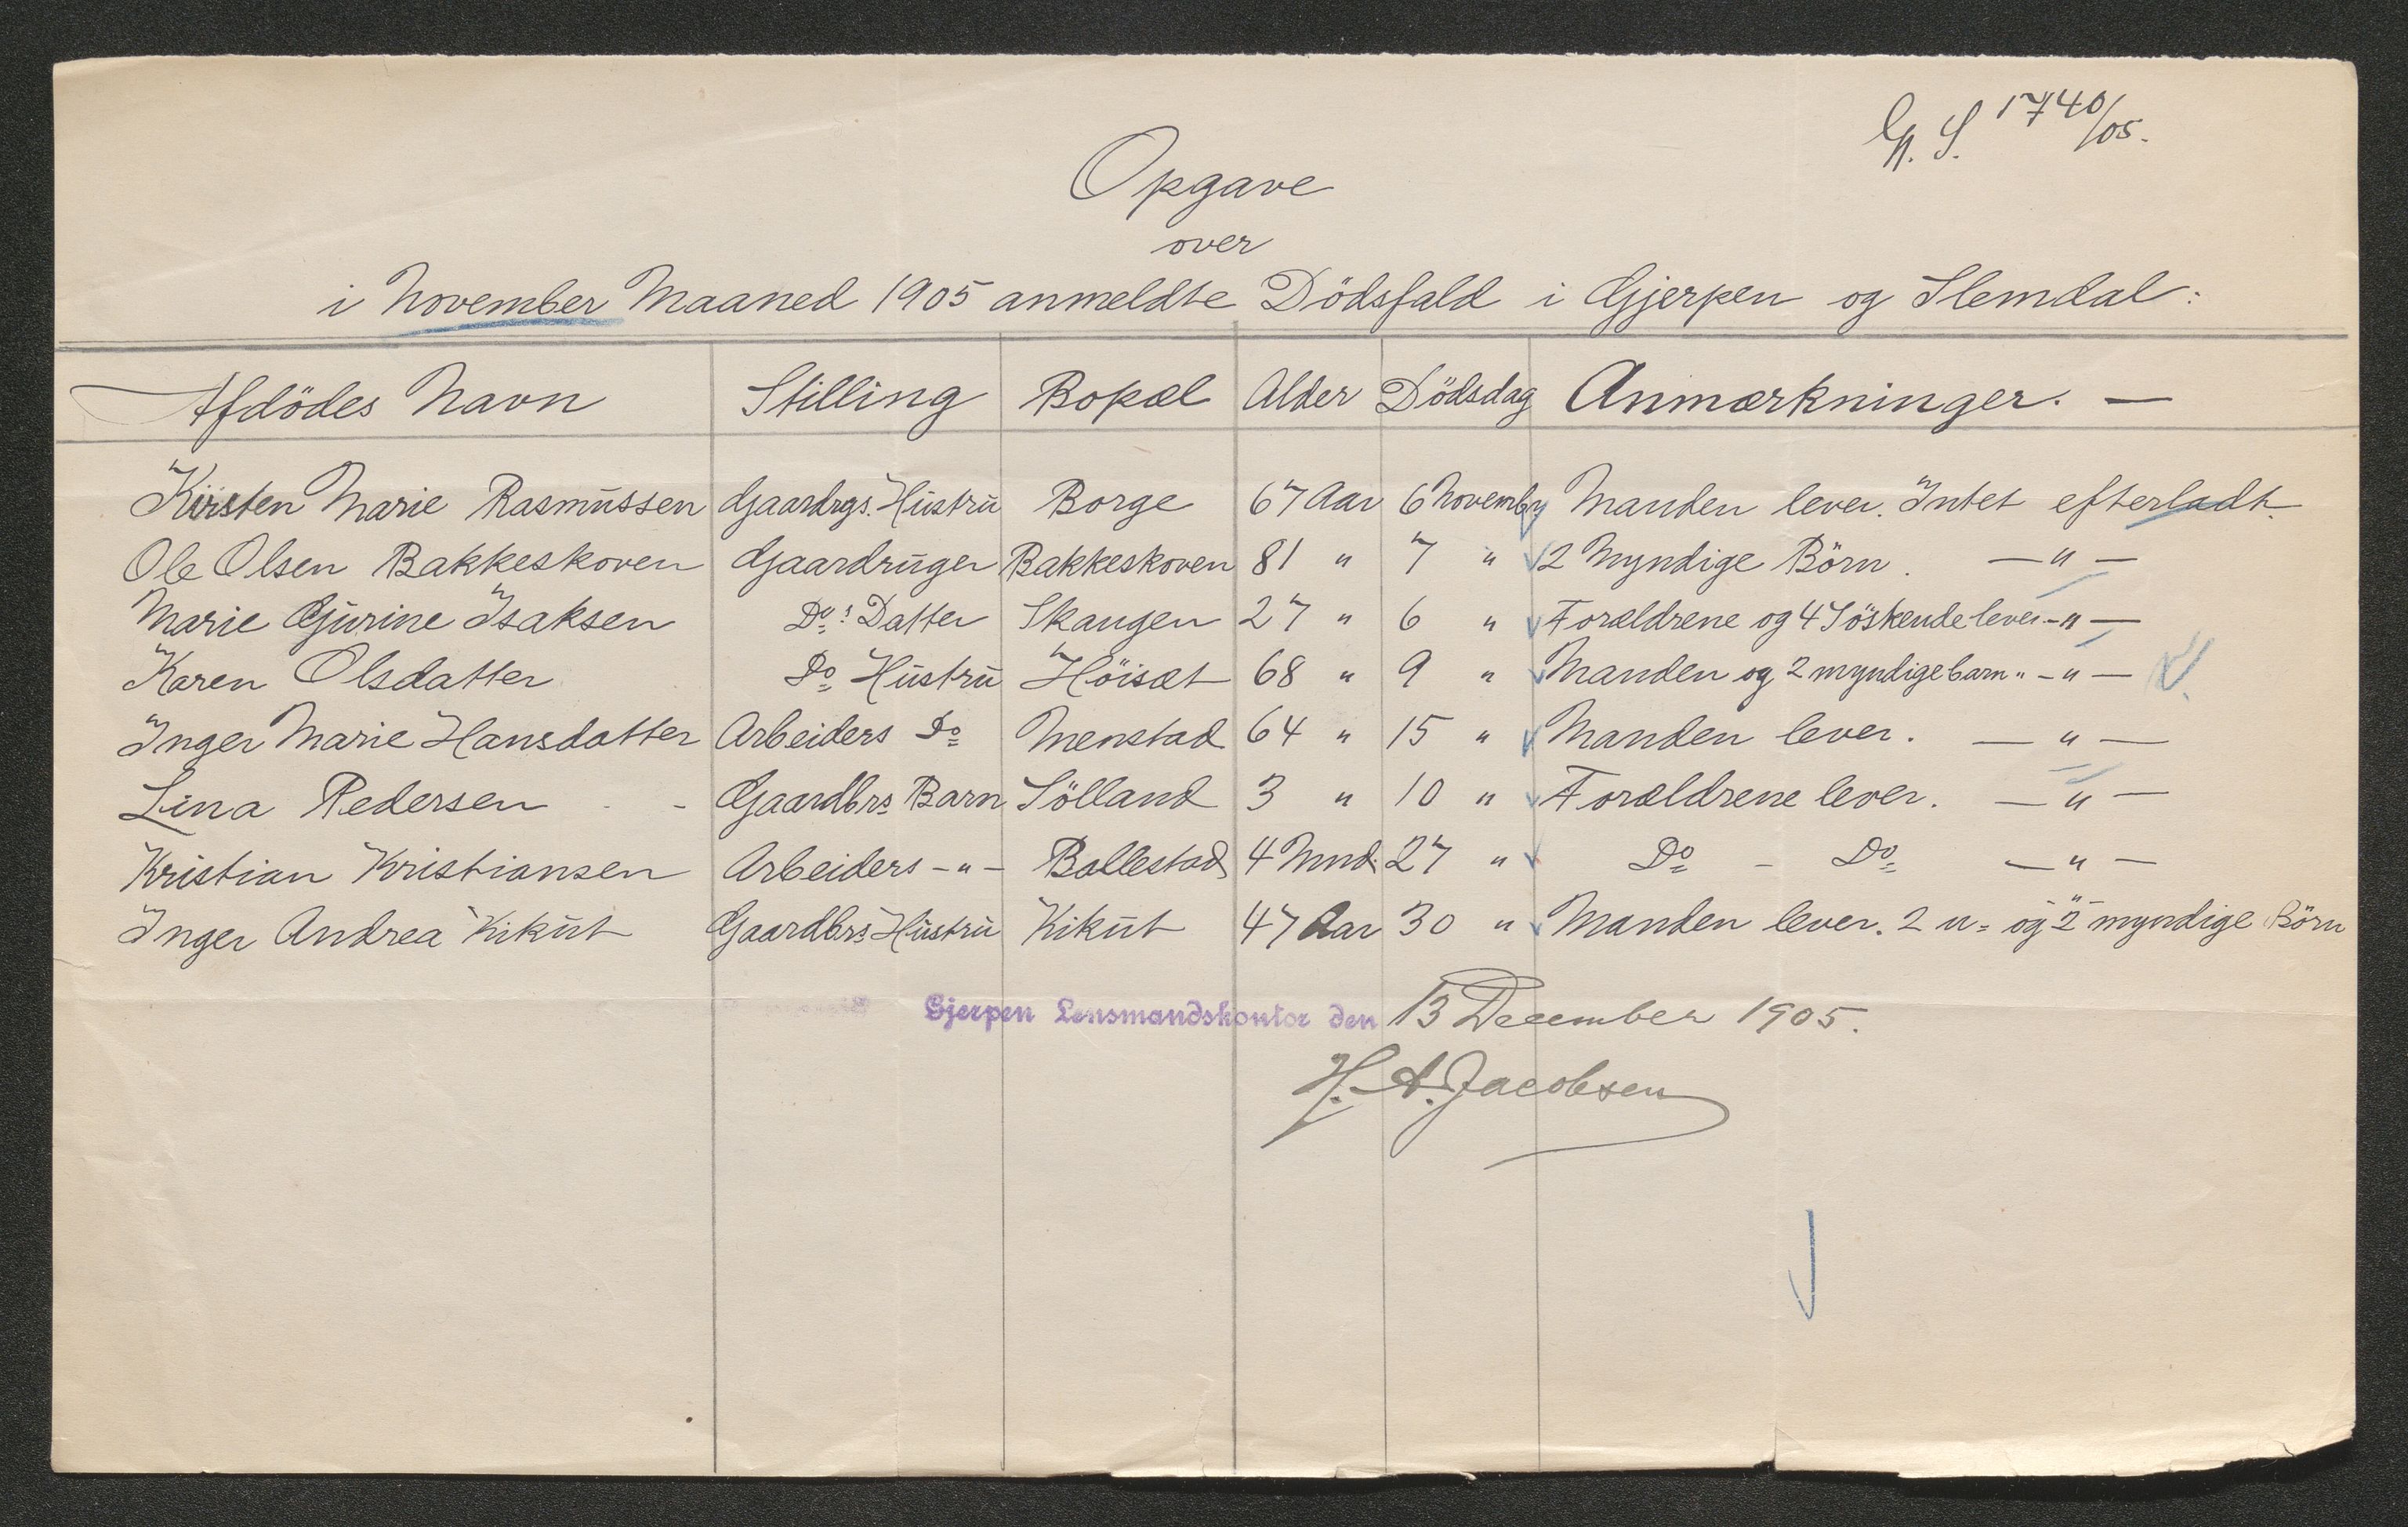 G. S. 1740/05.
Opgave
over
i November Maaned 1905 anmeldte Dödsfald i Gjerpen og Slemdal:
Afdödes Navn Stilling Bopæl Alder Dödsdag Anmærkninger. —
Kirsten Marie Rasmussen Gaardrgs. Hustru Borge 67 Aar 6 Novembr Manden lever. Intet efterladt.
Ole Olsen Bakkeskoven Gaardruger Bakkeskoven 81 " 7 " 2 Myndige Börn. — " —
Marie Gurine Isaksen Do s Datter Skaugen 27 " 6 " Forældrene og 4 Söskende lever - " —
Karen Olsdatter Do Hustru Höisæt 68 " 9 " Manden og 2 myndige barn " - " —
Inger Marie Hansdatter Arbeiders Do Menstad 64 " 15 " Manden lever. — " —
Lina Pedersen - - Gaardbrs Barn Sölland 3 " 10 " Forældrene lever. — " —
Kristian Kristiansen Arbeiders - " - Ballestad 4 Mnd. 27 " Do - Do — " —
Inger Andrea Kikut Gaardbrs Hustru Kikut 47 Aar 30 " Manden lever. 2 u= og 2 myndige Börn
Gjerpen Lensmandskontor den 13 December 1905.
H. A. Jacobsen